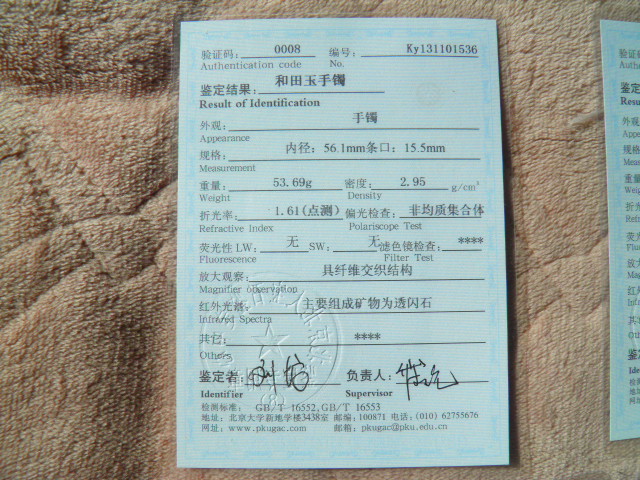 验证码: 0008 编号: Ky131101536
Authentication code No.
鉴定结果: 和田玉手镯
Result of Identification
外观: 手镯
Appearance
规格: 内径: 56.1mm条口: 15.5mm
Measurement
重量: 53.69g 密度: 2.95 g/cm³
Weight Density
折光率: 1.61(点测) 偏光检查: 非均质集合体
Refractive Index Polariscope Test
荧光性 LW: 无 SW: 无 滤色镜检查: ****
Fluorescence Filter Test
放大观察: 具纤维交织结构
Magnifier observation
红外光谱: 主要组成矿物为透闪石
Infrared Spectra
其它: ****
Others
鉴定者: 负责人:
Identifier Supervisor
检测标准: GB/T 16552,GB/T 16553
地址: 北京大学新地学楼3438室 邮编: 100871 电话: (010) 62755676
网址: www.pkugac.com 邮箱: pkugac@pku.edu.cn